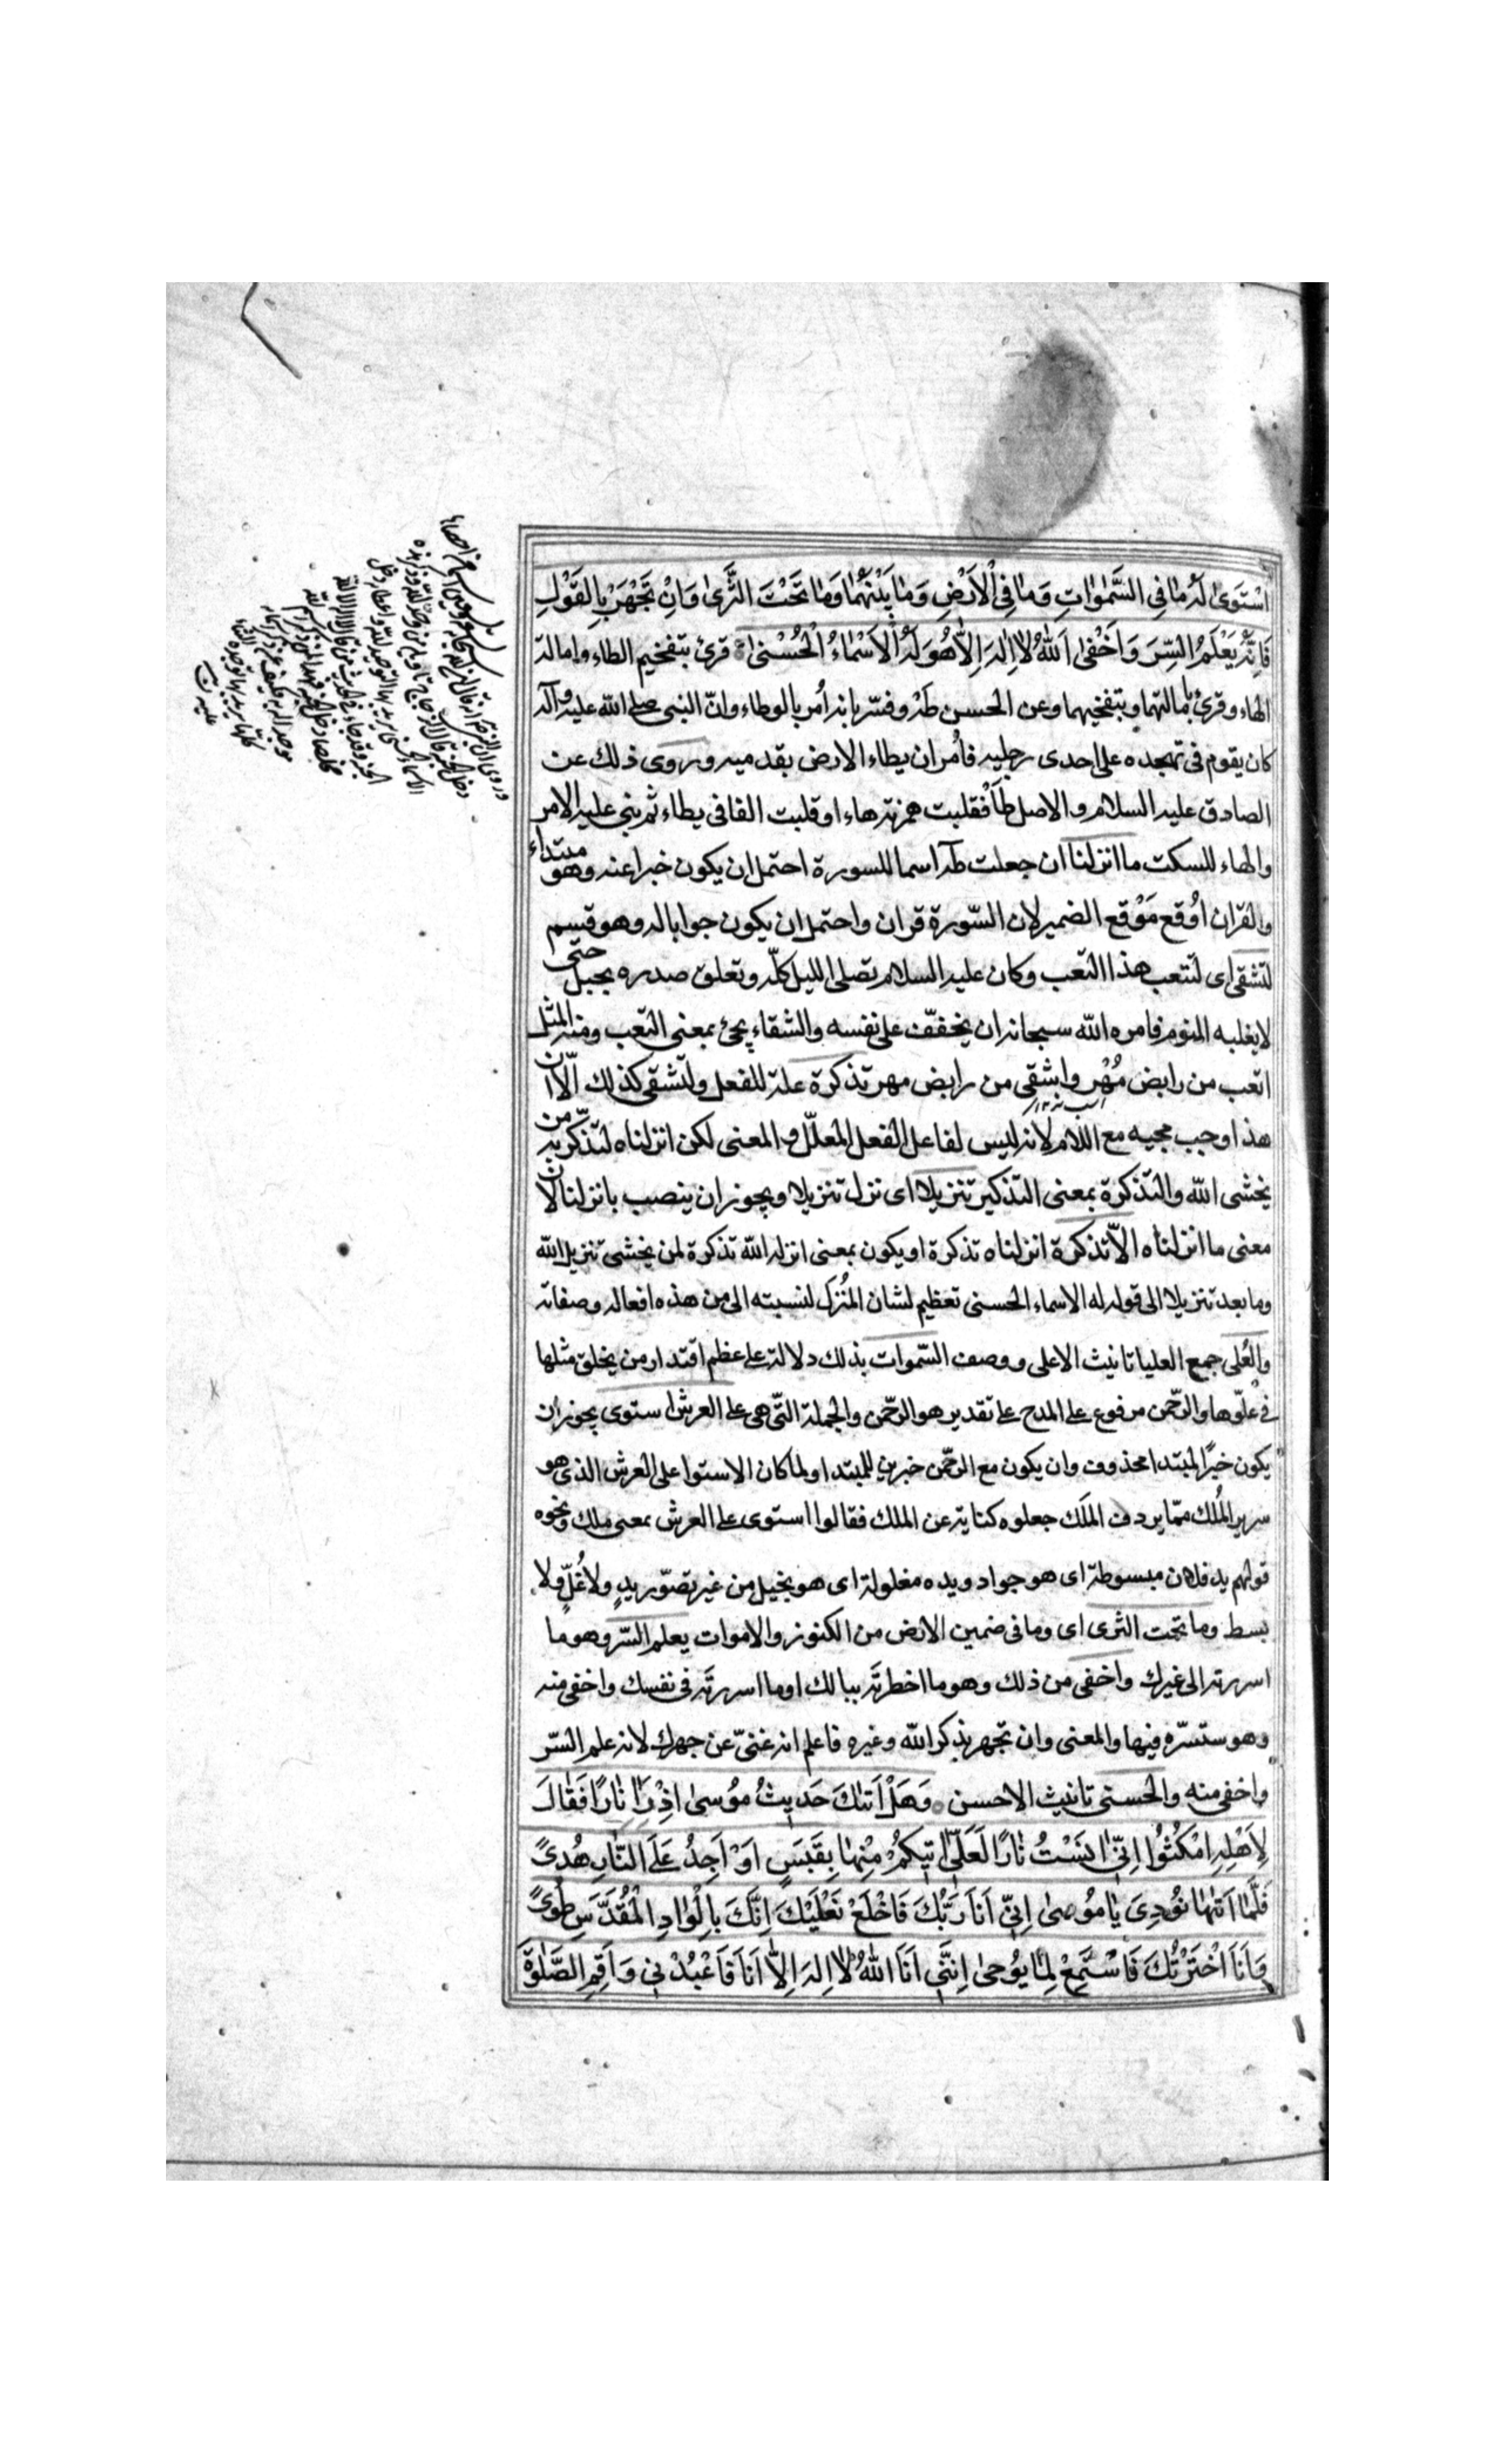 اسْتَوىٰ لَهُ مٰا فِي السَّمٰوٰاتِ وَمٰا فِي الْاَرْضِ وَمٰا بَيْنَهُمٰا وَمٰا تَحْتَ الثَّرىٰ وَاِنْ تَجْهَرْ بِالْقَوْلِ
فَاِنَّهُ يَعْلَمُ السِّرَّ وَاَخْفىٰ اَللّٰهُ لٰا اِلٰهَ اِلّٰا هُوَ لَهُ الْاَسْمٰاءُ الْحُسْنىٰ قرئ بتفخيم الطاء وامالة
الهاء وقرئ بامالتهما وبتفخيمهما وعن الحسن طَهْ وفسّر بانه اُمر بالوطاء وانّ النبى صلى الله عليه وآله
كان يقوم فى تهجده على احدى رجليه فاُمر ان يطاء الارض بقدميه وروى ذلك عن
الصادق عليه السلام والاصل طَأ فقلبت همزته هاء او قلبت الفا فى يطاء ثم بنى عليه الامر
والهاء للسكت ما انزلنا ان جعلت طه اسما للسورة احتمل ان يكون خبرا عنه وهو مبتداء
والقران اُوقع مَوْقع الضمير لان السّورة قران واحتمل ان يكون جوابا له وهو قسم
لتشقى اى لتتعب هذا التعب وكان عليه السلام يصلى الليل كلّه وتعلق صدره بحبل حتى
لا يغلبه النوم فامره الله سبحانه ان يخففّ على نفسه والشقاء يجئ بمعنى التعب ومنه المثل
اتعب من رايض مُهْر واشقى من رايض مهر تذكرة علة للفعل ولتشقى كذلك الّا ان
هذا وجب مجيه مع اللام لانه ليس لفاعل الفعل المعلّل والمعنى لكن انزلناه لتذكّر به من
يخشى الله والتذكرة بمعنى التذكير تنزيلا اى نزل تنزيلا ويجوز ان ينصب بانزلنا لان
معنى ما انزلناه الّا تذكرة انزلناه تذكرة او يكون بمعنى انزله الله تذكرة لمن يخشى تنزيل الله
وما بعد تنزيلا الى قوله له الاسماء الحسنى تعظيم لشان المُنزَل لنسبته الى من هذه افعاله وصفاته
والعُلى جمع العليا تانيث الاعلى ووصف السّموات بذلك دلالة على عظم اقتدار من يخلق مثلها
فى علّوها والرحّمن مرفوع على المدح على تقدير هو الرحّمن والجملة التّى هى على العرش استوى يجوز ان
يكون خبرًا لمبتدا محذوف وان يكون مع الرحّمن خبرين للمبتدا ولما كان الاستوا على العرش الذى هو
سرير المُلك ممّا يردف المَلَك جعلوه كناية عن الملك فقالوا استوى على العرش بمعنى ملك ونحوه
قولهم يد فلان مبسوطة اى هو جواد ويده مغلولة اى هو بخيل من غير تصوّر يدٍ ولا غُلٍّ ولا
بسط وما تحت الثرى اى وما فى ضمين الارض من الكنوز والاموات يعلم السّر وهو ما
اسررته الى غيرك واخفى من ذلك وهو ما اخطرته ببالك او ما اسررته فى نفسك واخفى منه
وهو ستسرّه فيها والمعنى وان تجهر بذكر الله وغيره فاعلم انه غنىّ عن جهرك لانه علم السّر
واخفى منه والحسنى تانيث الاحسن وَهَلْ اَتٰيكَ حَديثُ مُوسىٰ اِذْ رَاٰ نٰارًا فَقٰالَ
لِاَهْلِهِ امْكُثُوا اِنّى اٰنَسْتُ نٰارًا لَعَلّى اٰتيكُمْ مِنْهٰا بِقَبَسٍ اَوْ اَجِدُ عَلَى النّٰارِ هُدىً
فَلَمّٰا اَتٰيهٰا نُودِىَ يٰا مُوسىٰ اِنّى اَنَا رَبُّكَ فَاخْلَعْ نَعْلَيْكَ اِنَّكَ بِالْوٰادِ الْمُقَدَّسِ طُوىً
وَاَنَا اخْتَرْتُكَ فَاسْتَمِعْ لِمٰا يُوحىٰ اِنَّنى اَنَا اللّٰهُ لٰا اِلٰهَ اِلّٰا اَنَا فَاعْبُدْنى وَاَقِمِ الصَّلٰوةَ